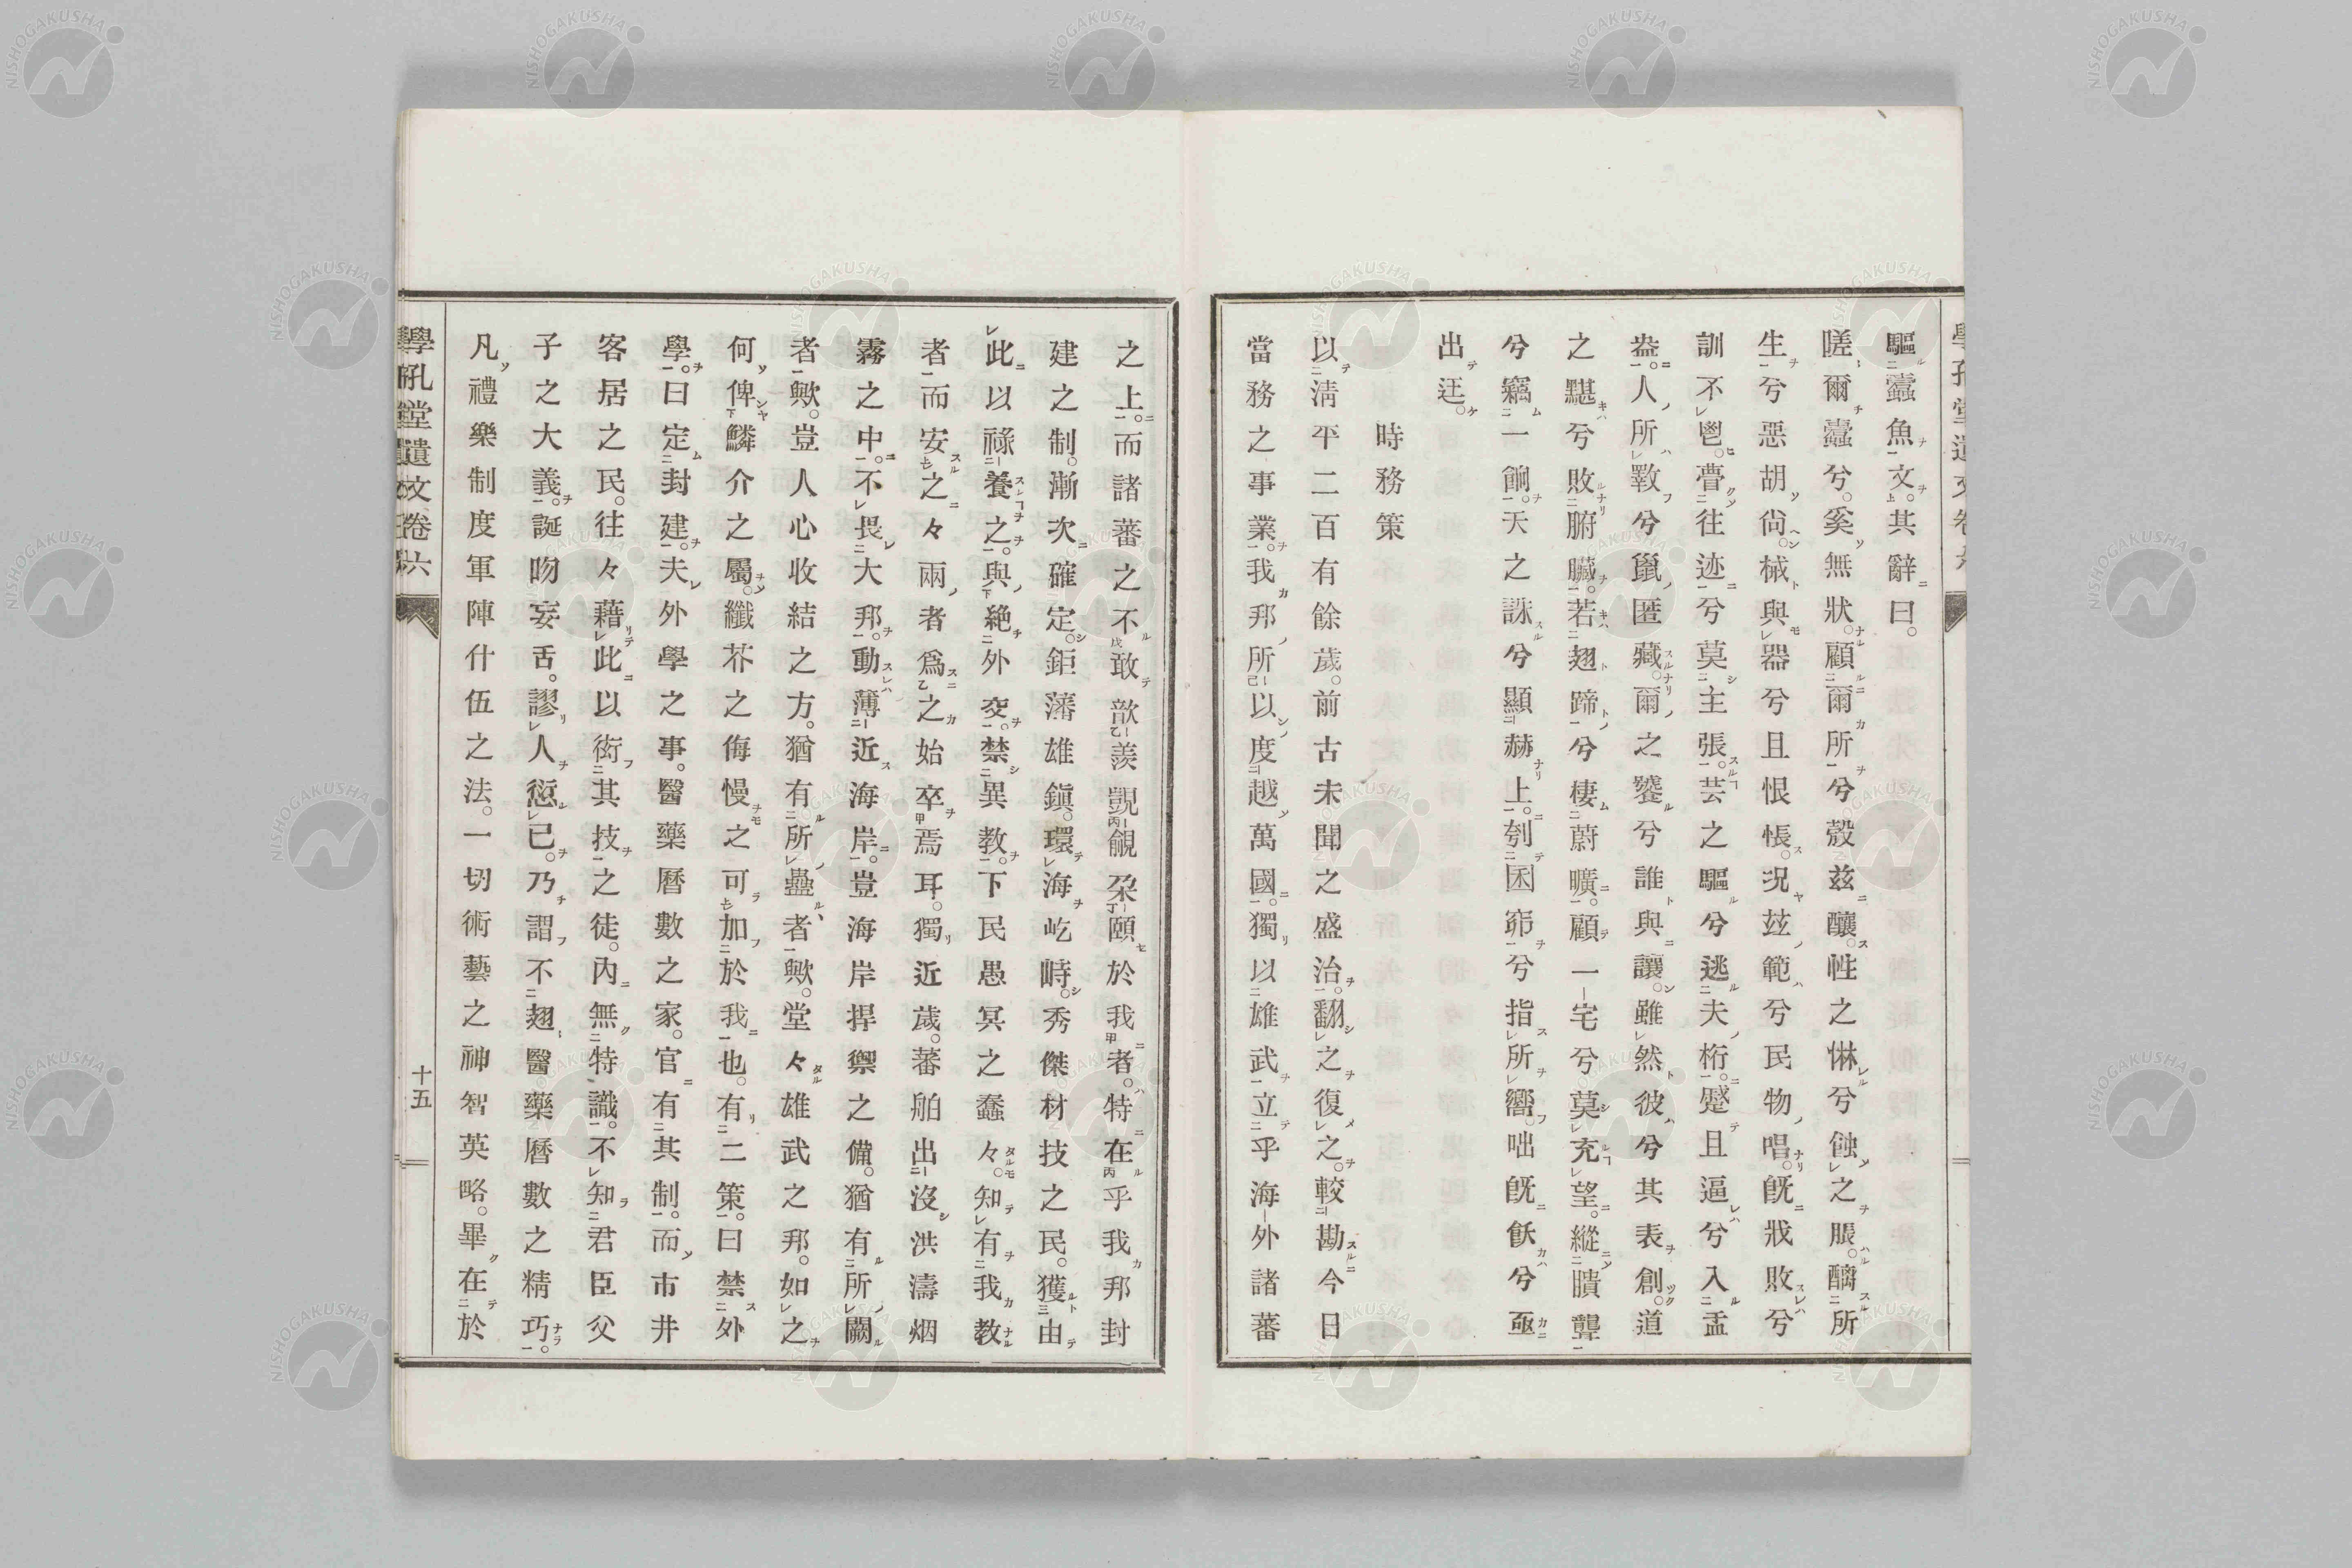 驅蠹魚文。其辭曰。
嗟爾蠹兮。奚無狀。顧爾所兮穀茲釀。性之惏兮蝕之脹。醨所
生兮惡胡尙。械與器兮且恨悵。況玆範兮民物唱。旣戕敗兮
訓不鬯。瞢往迹兮莫主張。芸之驅兮逃夫桁。蹙且逼兮入盂
盎。人所斁兮篋匧藏。爾之饕兮誰與讓。雖然彼兮其表創。道
之黮兮敗腑臟。若翅蹄兮棲蔚曠。顧一宅兮莫充望。縱聵聾
兮竊一餉。天之誅兮顯赫上。刳困窌兮指所嚮。咄旣飫兮亟
出迋。
時務策
以淸平二百有餘歲。前古未聞之盛治。翻之復之。較勘今日
當務之事業。我邦所以度越萬國。獨以雄武立乎海外諸蕃
之上。而諸蕃之不敢歆羨覬覦朶頤於我者。特在乎我邦封
建之制。漸次確定。鉅藩雄鎭。環海屹峙。秀傑材技之民。獲由
此以祿養之。與絶外交。禁異敎。下民愚冥之蠢々。知有我敎
者而安之々兩者爲之始卒焉耳。獨近歲。蕃舶出沒洪濤烟
霧之中。不畏大邦。動薄近海岸。豈海岸捍禦之備。猶有所闕
者歟。豈人心收結之方。猶有所蠱者歟。堂々雄武之邦。如之
何俾鱗介之屬。纖芥之侮慢之可加於我也。有二策。曰禁外
學。曰定封建。夫外學之事。醫藥曆數之家。官有其制。而市井
客居之民。往々藉此以衒其技之徒。內無特識。不知君臣父
子之大義。誕吻妄舌。謬人愆已。乃謂不翅醫藥曆數之精巧。
凡禮樂制度軍陣什伍之法。一切術藝之神智英略。畢在於
學孔堂遺文卷六
十五